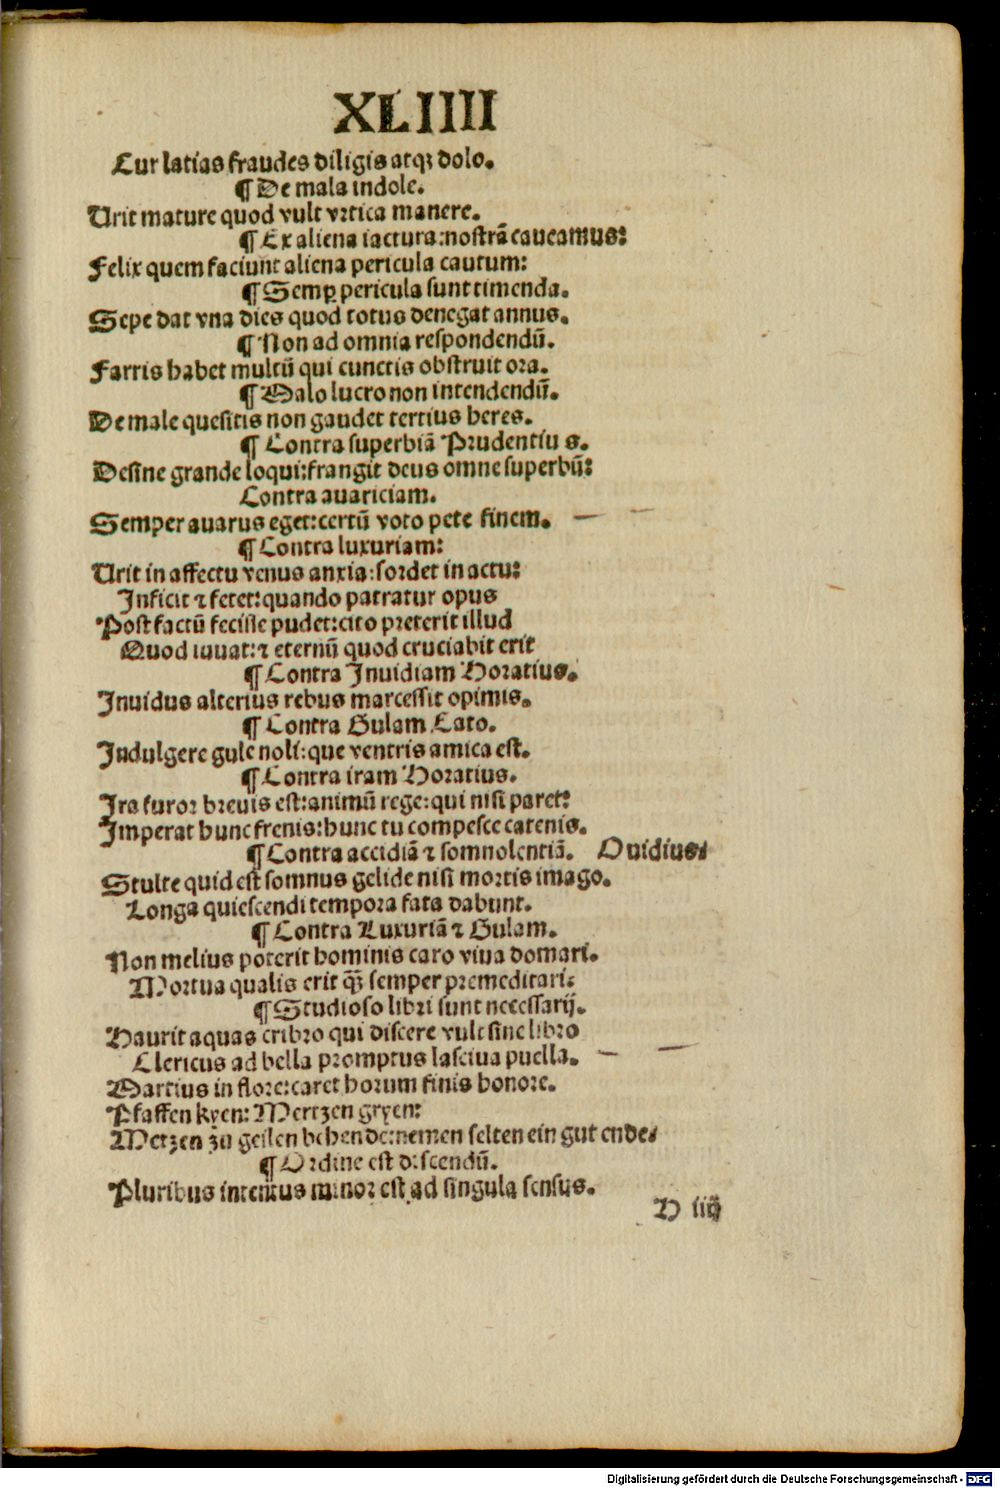 XLIIII
Cur latias fraudes diligis atqꝫ dolo.
¶ De mala indole.
Urit mature quod vult vrtica manere.
¶ Ex aliena iactura: nostrā caueamus:
Felix quem faciunt aliena pericula cautum:
¶ Semꝑ pericula sunt timenda.
Sepe dat vna dies quod totus denegat annus.
¶ Non ad omnia respondendū.
Farris habet multū qui cunctis obstruit ora.
¶ Malo lucro non intendendū.
De male quesitis non gaudet tertius heres.
¶ Contra superbiā Prudentiu s.
Desine grande loqui: frangit deus omne superbū:
Contra auariciam.
Semper auarus eget: certū voto pete finem.
¶ Contra luxuriam:
Urit in affectu venus anxia: sordet in actu:
Inficit ⁊ fetet: quando patratur opus
Post factū fecisse pudet: cito preterit illud
Quod iuuat: ⁊ eternū quod cruciabit erit
¶ Contra Inuidiam Horatius.
Inuidus alterius rebus marcessit opimis.
¶ Contra Gulam Cato.
Indulgere gule noli: que ventris amica est.
¶ Contra iram Horatius.
Ira furor breuis est: animū rege: qui nisi paret:
Imperat hunc frenis: hunc tu compesce catenis.
¶ Contra accidiā ⁊ somnolentiā. Ouidius:
Stulte quid est somnus gelide nisi mortis imago.
Longa quiescendi tempora fata dabunt.
¶ Contra Luxuriā ⁊ Gulam.
Non melius poterit hominis caro viua domari.
Mortua qualis erit q̄ꝫ semper premeditari:
¶ Studioso libri sunt necessarij.
Haurit aquas cribro qui discere vult sine libro
Clericus ad bella promptus lasciua puella.
Martius in flore: caret horum finis honore.
Pfaffen kyen: Mertzen gryen:
Metzen zū geilen behende: nemen selten ein gut ende:
¶ Ordine est discendū.
Pluribus intentus minor est ad singula sensus.
H iiij
Digitalisierung gefördert durch die Deutsche Forschungsgemeinschaft - DFG